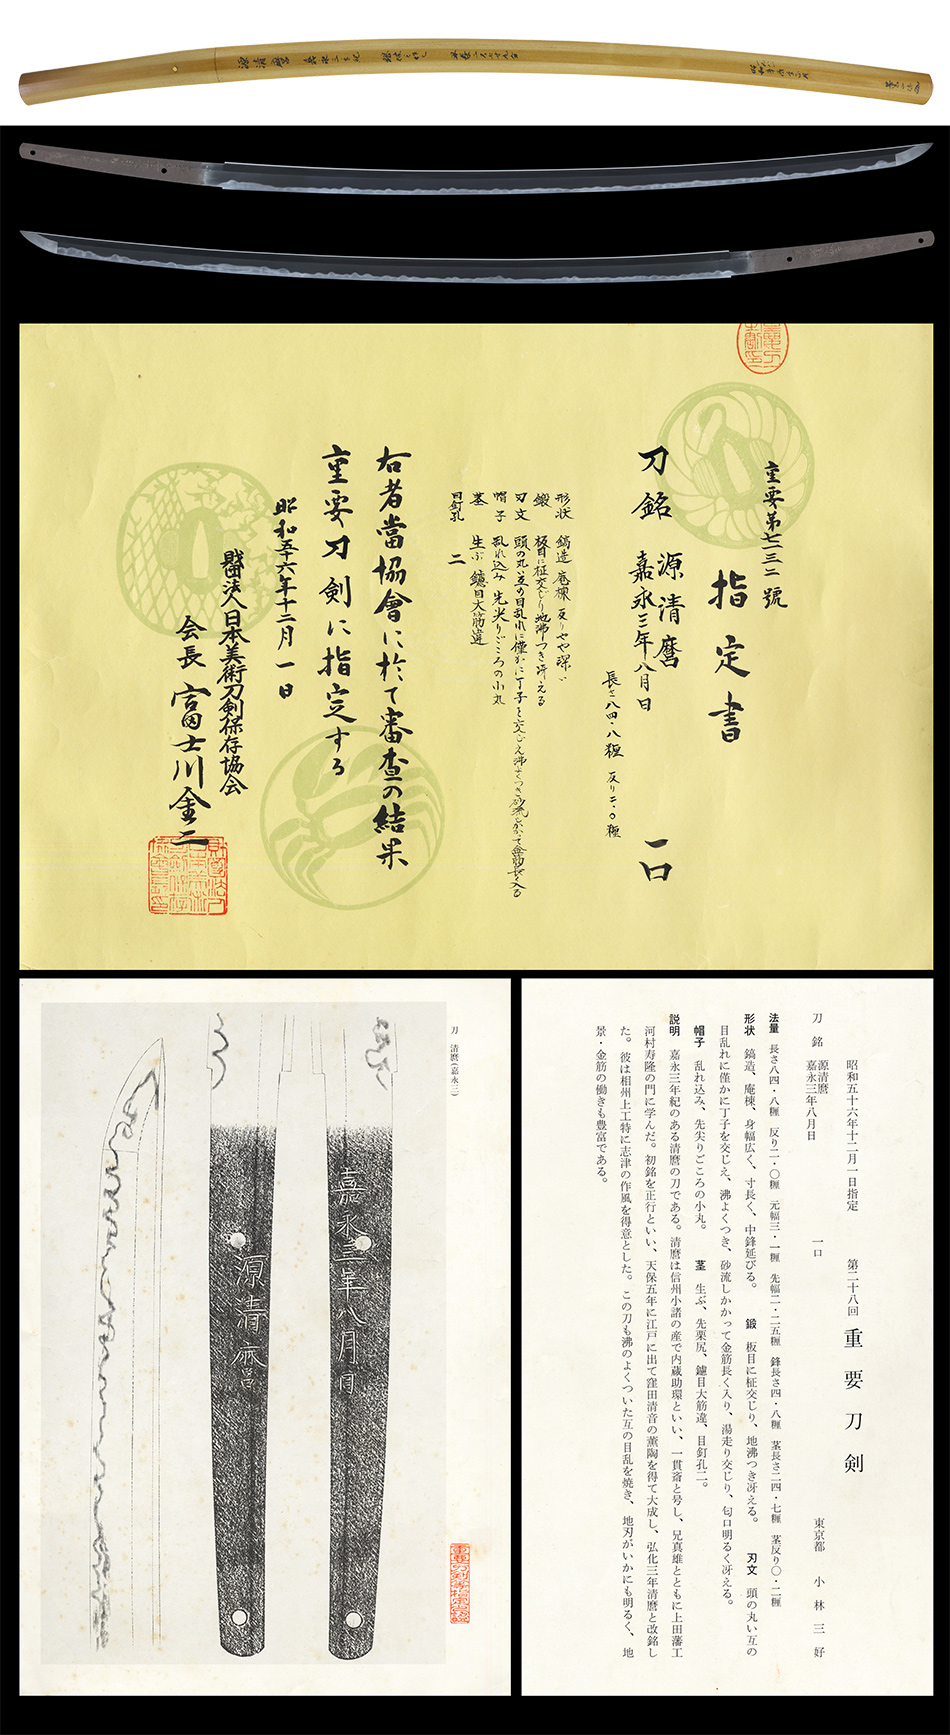 源清麿
重要第七一三二號
指定書
刀 銘 源清麿 一口
嘉永三年八月日
長さ八四・八糎 反り二・〇糎
形状 鎬造 庵棟 反りやや深い
鍛 板目に柾交じり地沸つき冴える
刃文 頭の丸い互の目乱れに僅かに丁子を交じえ沸よくつき砂流しかかって金筋長く入る
帽子 乱れ込み 先尖りごころの小丸
茎 生ぶ 鑢目大筋違
目釘孔 二
右者當協會に於て審査の結果
重要刀剣に指定する
昭和五十六年十二月一日
財団法人日本美術刀剣保存協会
会長 富士川金二
刀 清麿(嘉永三)
嘉永三年八月日
源清麿
昭和五十六年十二月一日指定 第二十八回 重要刀剣
刀 銘 源清麿 一口 東京都 小林三好
嘉永三年八月日
法量 長さ八四・八糎 反り二・〇糎 元幅三・一糎 先幅二・二五糎 鋒長さ四・八糎 茎長さ二四・七糎 茎反り〇・二糎
形状 鎬造、庵棟、身幅広く、寸長く、中鋒延びる。 鍛 板目に柾交じり、地沸つき冴える。 刃文 頭の丸い互の
目乱れに僅かに丁子を交じえ、沸よくつき、砂流しかかって金筋長く入り、湯走り交じり、匂口明るく冴える。
帽子 乱れ込み、先尖りごころの小丸。 茎 生ぶ、先栗尻、鑢目大筋違、目釘孔二。
説明 嘉永三年紀のある清麿の刀である。清麿は信州小諸の産で内蔵助環といい、一貫斎と号し、兄真雄とともに上田藩工
河村寿隆の門に学んだ。初銘を正行といい、天保五年に江戸に出て窪田清音の薫陶を得て大成し、弘化三年清麿と改銘し
た。彼は相州上工特に志津の作風を得意とした。この刀も沸のよくついた互の目乱を焼き、地刃がいかにも明るく、地
景・金筋の働きも豊富である。